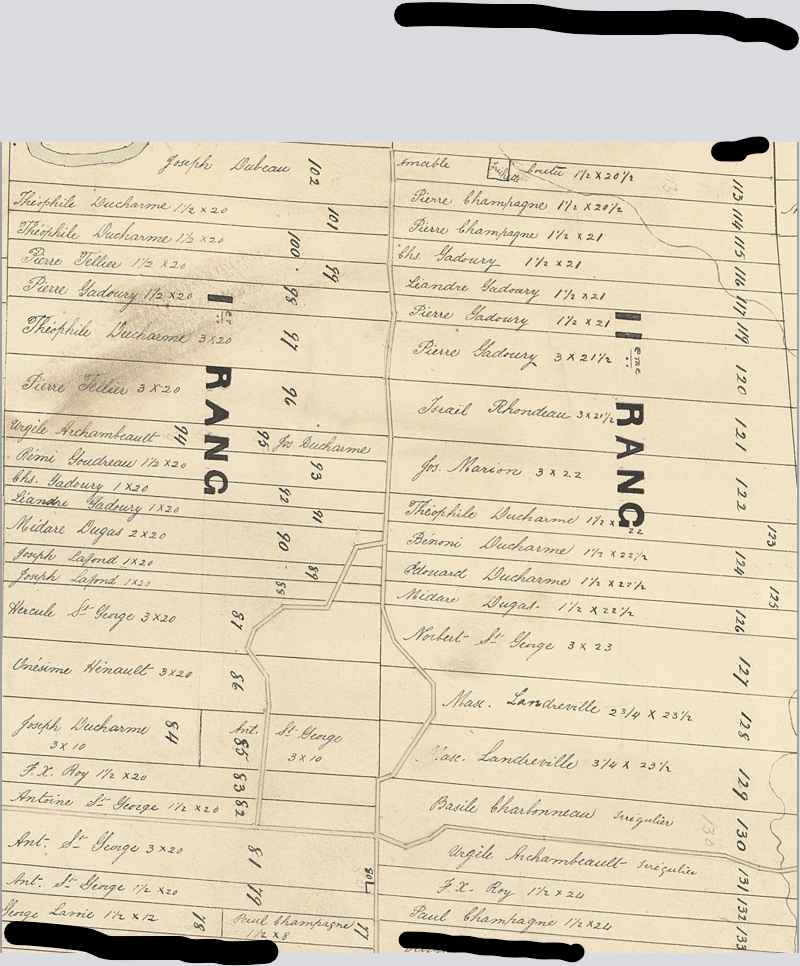 Joseph Dubeau 102
Théophile Ducharme 1½ x 20 101
Théophile Ducharme 1½ x 20 100
Pierre Tellier 1½ x 20 99
Pierre Gadoury 1½ x 20 98
Théophile Ducharme 3 x 20 97
Pierre Tellier 3 x 20 96
Urgile Archambeault 94
95 Jos Ducharme
Rémi Goudreau 1½ x 20 93
Chs. Gadoury 1 x 20 92
Léandre Gadoury 1 x 20 91
Midare Dugas 2 x 20 90
Joseph Lafond 1 x 20 89
Joseph Lafond 1 x 20 88
Hercule St George 3 x 20 87
Onésime Hénault 3 x 20 86
Joseph Ducharme 84
3 x 10
Ant. St George 85
3 x 10
F.X. Roy 1½ x 20 83
Antoine St George 1½ x 20 82
Ant. St George 3 x 20 81
80
Ant. St George 1½ x 20 79
George Lamie 1½ x 12 78
Paul Champagne 77
1½ x 8
Ier RANG
Amable 1½ x 20½ 113
Pierre Champagne 1½ x 20½ 114
Pierre Champagne 1½ x 21 115
Chs. Gadoury 1½ x 21 116
Léandre Gadoury 1½ x 21 117
Pierre Gadoury 1½ x 21 119
Pierre Gadoury 3 x 21½ 120
Israël Rhondeau 3 x 21½ 121
Jos. Marion 3 x 22 122
Théophile Ducharme 1½ x 22 123
Bénoni Ducharme 1½ x 22½ 124
Édouard Ducharme 1½ x 22½ 125
Midare Dugas 1½ x 22½ 126
Norbert St George 3 x 23 127
Masc. Landreville 2¾ x 23½ 128
Masc. Landreville 3¼ x 23½ 129
Basile Charbonneau Irrégulier 130
130
Urgile Archambeault Irrégulier 131
F.X. Roy 1½ x 24 132
Paul Champagne 1½ x 24 133
IIeme RANG